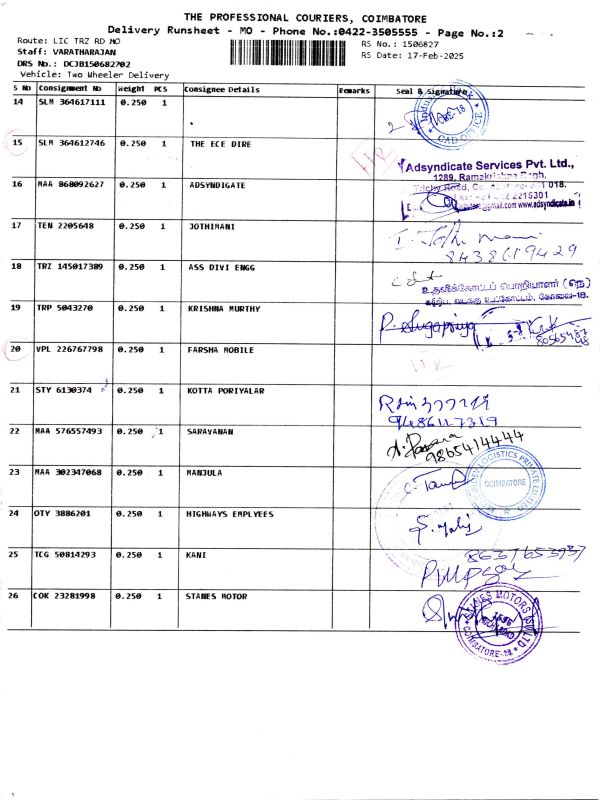 THE PROFESSIONAL COURIERS, COIMBATORE
Delivery Runsheet - MO - Phone No.:0422-3505555 - Page No.:2
Route: LIC TRZ RD MO
RS No.: 1506827
Staff: VARATHARAJAN
RS Date: 17-Feb-2025
DRS No.: DCJB150682702
Vehicle: Two Wheeler Delivery
S No Consignment No Weight PCS Consignee Details Remarks Seal & Signature
14 SLM 364617111 0.250 1
15 SLM 364612746 0.250 1 THE ECE DIRE
Adsyndicate Services Pvt. Ltd.,
1289, Ramakrishna
16 MAA 868092627 0.250 1 ADSYNDIGATE
Trichy Road, 018.
2215301
www.adsyndicate.in
17 TEN 2205648 0.250 1 JOTHIMANI
8438619429
18 TRZ 145017389 0.250 1 ASS DIVI ENGG
உதவிக்கோட்டப் பொறியாளர் (நெ)
கோவை-18.
19 TRP 5043270 0.250 1 KRISHNA MURTHY
R. Sugapriya
20 VPL 226767798 0.250 1 FARSHA MOBILE
21 STY 6130374 0.250 1 KOTTA PORIYALAR
9486117319
22 MAA 576557493 0.250 1 SARAVANAN
9865414444
23 MAA 302347068 0.250 1 MANJULA
LOGISTICS PRIVATE LIMITED
COIMBATORE
24 OTY 3886201 0.250 1 HIGHWAYS EMPLYEES
25 TCG 50814293 0.250 1 KANI
8637653937
26 COK 23281998 0.250 1 STANES MOTOR
STANES MOTORS
COIMBATORE-18